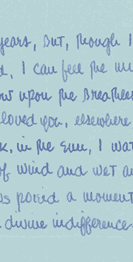 years, But, though I
, I can feel the
upon the Breathless
loved you, elsewhere
, in the Sun, I wat
of Wind and wet an
poured a moment
divine indifference